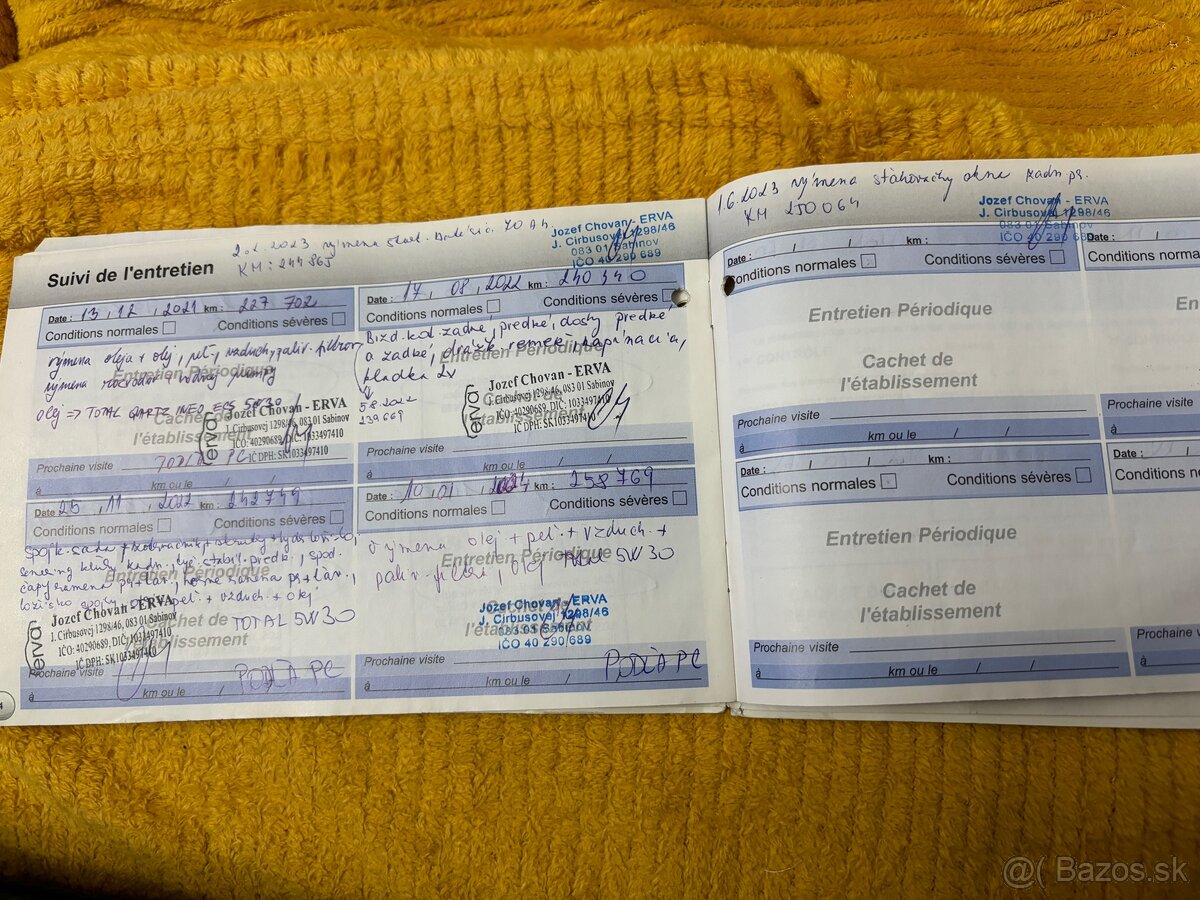 2.2.2023 výmena štart. batérie 70 Ah
KM: 244 865
Jozef Chovan - ERVA
J. Cirbusovej 1298/46
083 01 Sabinov
IČO 40 290 689
Suivi de l'entretien
Date : 13, 12, 2021 km : 227 702
Conditions normales
Conditions sévères
výmena oleja + olej, pel., vzduch, paliv. filtrov
výmena rozvodov + vodnej pumpy
olej => TOTAL QUARTZ INEO ECS 5W30
Entretien Périodique
Cachet de
l'établissement
ervan
Jozef Chovan - ERVA
J. Cirbusovej 1298/46, 083 01 Sabinov
IČO: 40290689, DIČ: 1033497410
IČ DPH: SK1033497410
Prochaine visite
PODĽA PC
à
km ou le / /
Date : 17, 08, 2022 km : 240 340
Conditions normales
Conditions sévères
Brzd. kot. zadné, predné, dosky predné
a zadné, drážk. remeň, napínacia,
kladka 2x
5.8.2022
239669
Entretien Périodique
Cachet de
l'établissement
ervan
Jozef Chovan - ERVA
J. Cirbusovej 1298/46, 083 01 Sabinov
IČO: 40290689, DIČ: 1033497410
IČ DPH: SK1033497410
Prochaine visite
à
km ou le / /
Date 25, 11, 2022 km : 242 749
Conditions normales
Conditions sévères
+ hydr. ložisko,
tyč. stabil. predk., spod.
ložisko spojky
pel. + vzduch + olej
TOTAL 5W30
Entretien Périodique
Cachet de
l'établissement
ervan
Jozef Chovan - ERVA
J. Cirbusovej 1298/46, 083 01 Sabinov
IČO: 40290689, DIČ: 1033497410
IČ DPH: SK1033497410
Prochaine visite
PODĽA PC
à
km ou le / /
Date : 10, 01, 2024 km : 258 769
Conditions normales
Conditions sévères
Výmena olej + pel. + vzduch. +
paliv. filtri, olej TOTAL 5W30
Entretien Périodique
Cachet de
l'établissement
Jozef Chovan - ERVA
J. Cirbusovej 1298/46
083 01 Sabinov
IČO 40 290 689
Prochaine visite
PODĽA PC
à
km ou le / /
4
1.6.2023 výmena sťahovačky okna zadn. pr.
KM 250064
Jozef Chovan - ERVA
J. Cirbusovej 1298/46
083 01 Sabinov
IČO 40 290 689
Date : / / km :
Conditions normales
Conditions sévères
Entretien Périodique
Cachet de
l'établissement
Prochaine visite
à
km ou le / /
Date : / / km :
Conditions normales
Conditions sévères
Entretien Périodique
Cachet de
l'établissement
Prochaine visite
à
km ou le / /
Date : /
Conditions norma
En
Prochaine visite
à
Date : /
Conditions norm
Prochaine visite
à
@( Bazos.sk